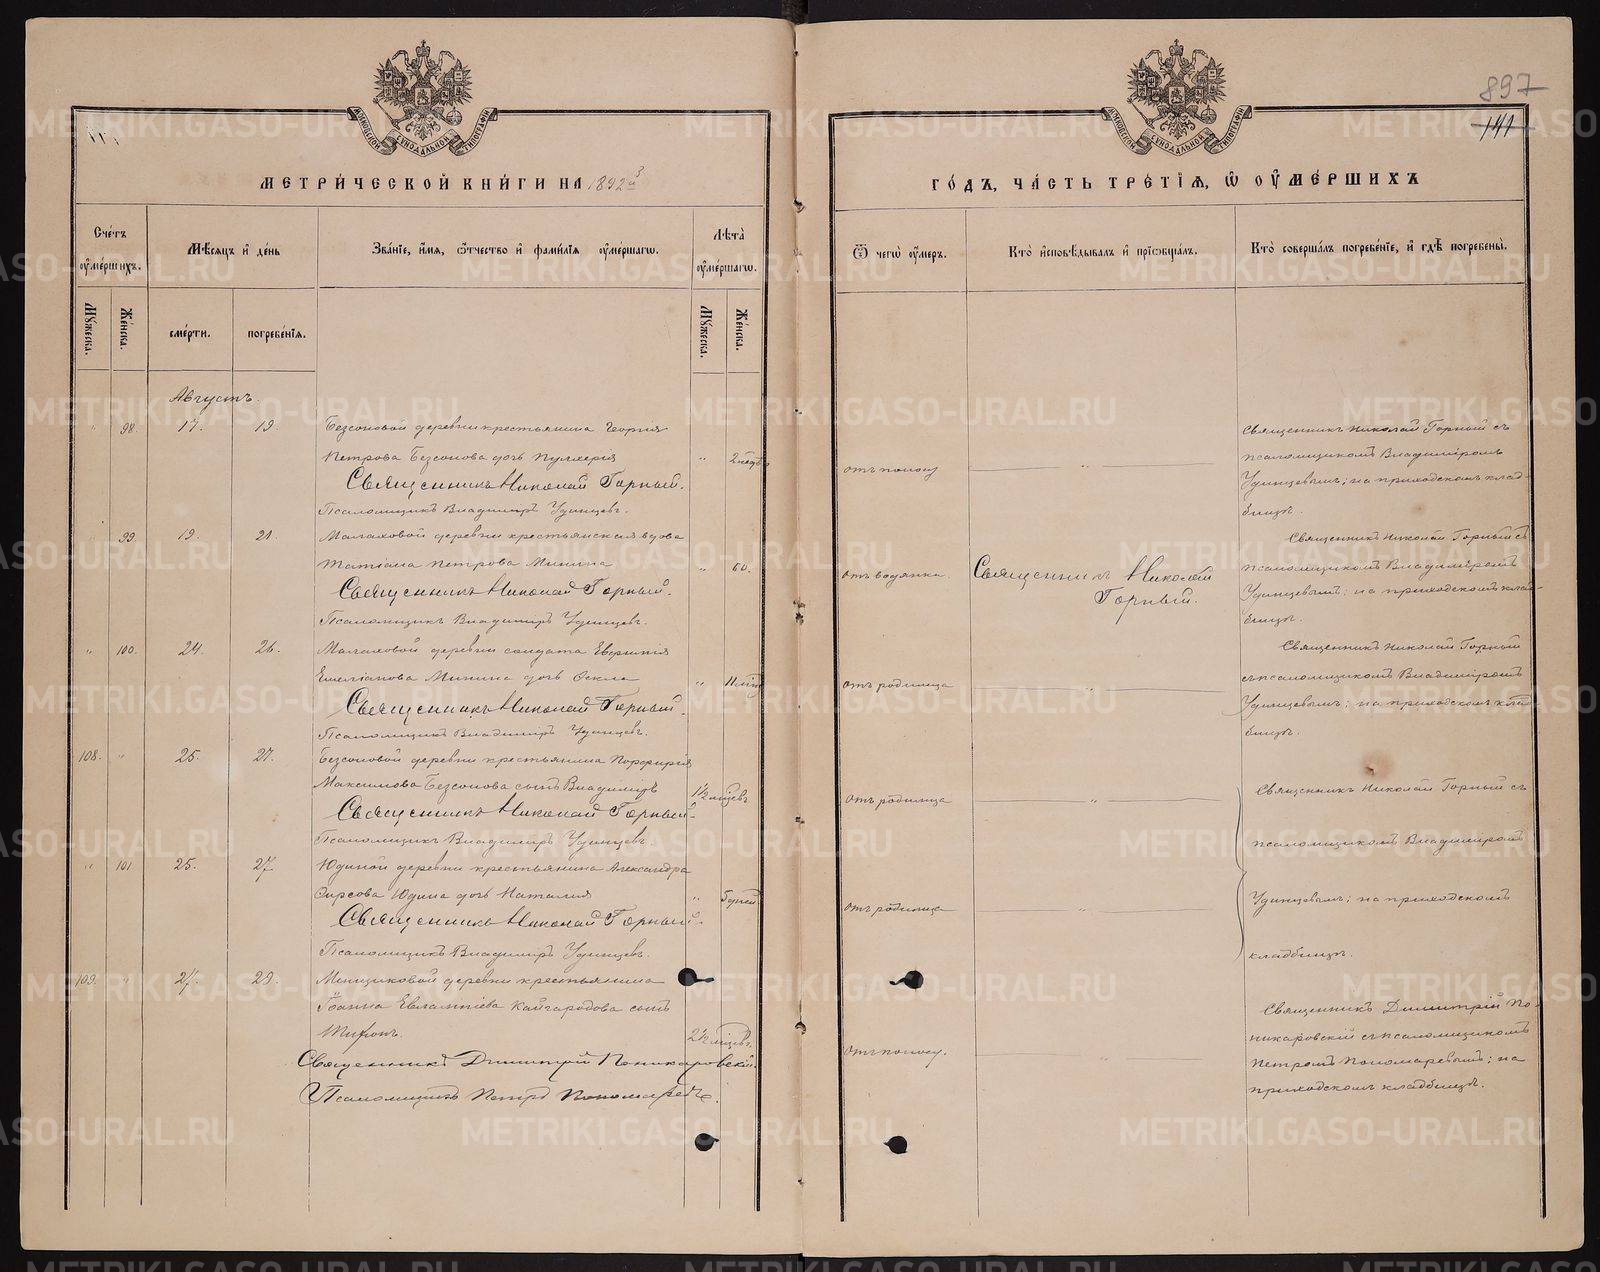 897
141
МОСКОВСКОЙ СѴНОДАЛЬНОЙ ТИПОГРАФІИ
МЕТРИ́ЧЕСКОЙ КНИ́ГИ НА 1892 3
Сче́тъ ᲂу҆ме́ршихъ.
Мѣ́сяцъ и҆ де́нь
Зва́ніе, и҆́мя, ѻ҆́тчество и҆ фами́лія ᲂу҆ме́ршагѡ.
Лѣ́та ᲂу҆ме́ршагѡ.
Мꙋ́жеска.
Же́нска.
сме́рти.
погребе́нія.
Мꙋ́жеска.
Же́нска.
Августъ.
" 98. 17. 19. Безсоновой деревни крестьянина Георгія
Петрова Безсонова дочь Пулхерія " 2 недѣ
Священникъ Николай Горный.
Псаломщикъ Владиміръ Удинцевъ.
" 99. 19. 21. Малаховой деревни крестьянская вдова
Татіана Петрова Минина " 60.
Священникъ Николай Горный.
Псаломщикъ Владиміръ Удинцев.
" 100. 24. 26. Малаховой деревни солдата Евфимія
Емеліанова Минина дочь Ѳекла " 11 мѣс
Священникъ Николай Горный.
Псаломщикъ Владиміръ Удинцевъ.
108. " 25. 27. Безсоновой деревни крестьянина Порфирія
Максимова Безсонова сынъ Владиміръ 1½ мѣсцевъ
Священникъ Николай Горный.
Псаломщикъ Владиміръ Удинцевъ.
" 101 25. 27. Юдиной деревни крестьянина Александра
Ѳирсова Юдина дочь Наталія " 5 дней
Священникъ Николай Горный.
Псаломщикъ Владиміръ Удинцевъ.
109. " 27. 29. Менщиковой деревни крестьянина
Іоанна Евлампіева Кайгородова сынъ
2½ мѣсцевъ.
Священникъ Димитрій Поникаровскій.
Псаломщикъ Петръ Пономаревъ.
ГО́ДЪ, ЧА́СТЬ ТРЕ́ТІЯ, Ѡ҆ ОУ҆МЕ́РШИХЪ
Ѿ чегѡ̀ ᲂу҆́меръ.
Кто̀ и҆сповѣ́дывалъ и҆ прїѡбща́лъ.
Кто̀ соверша́лъ погребе́ніе, и҆ гдѣ̀ погребены̀.
отъ поносу
"
Священникъ Николай Горный съ
псаломщикомъ Владиміромъ
Удинцевымъ; на приходскомъ клад-
бищѣ.
отъ водянки
Священникъ Николай
Горный.
Священникъ Николай Горный съ
псаломщикомъ Владиміромъ
Удинцевымъ; на приходскомъ клад-
бищѣ.
отъ родимца
"
Священникъ Николай Горный
съ псаломщикомъ Владиміромъ
Удинцевымъ; на приходскомъ клад-
бищѣ.
отъ родимца
"
Священникъ Николай Горный съ
псаломщикомъ Владиміромъ
отъ родимца
"
Удинцевымъ; на приходскомъ
кладбищѣ.
отъ поносу.
"
Священникъ Димитрій По-
никаровскій съ псаломщикомъ
Петромъ Пономаревымъ; на
приходскомъ кладбищѣ.
METRIKI.GASO-URAL.RU